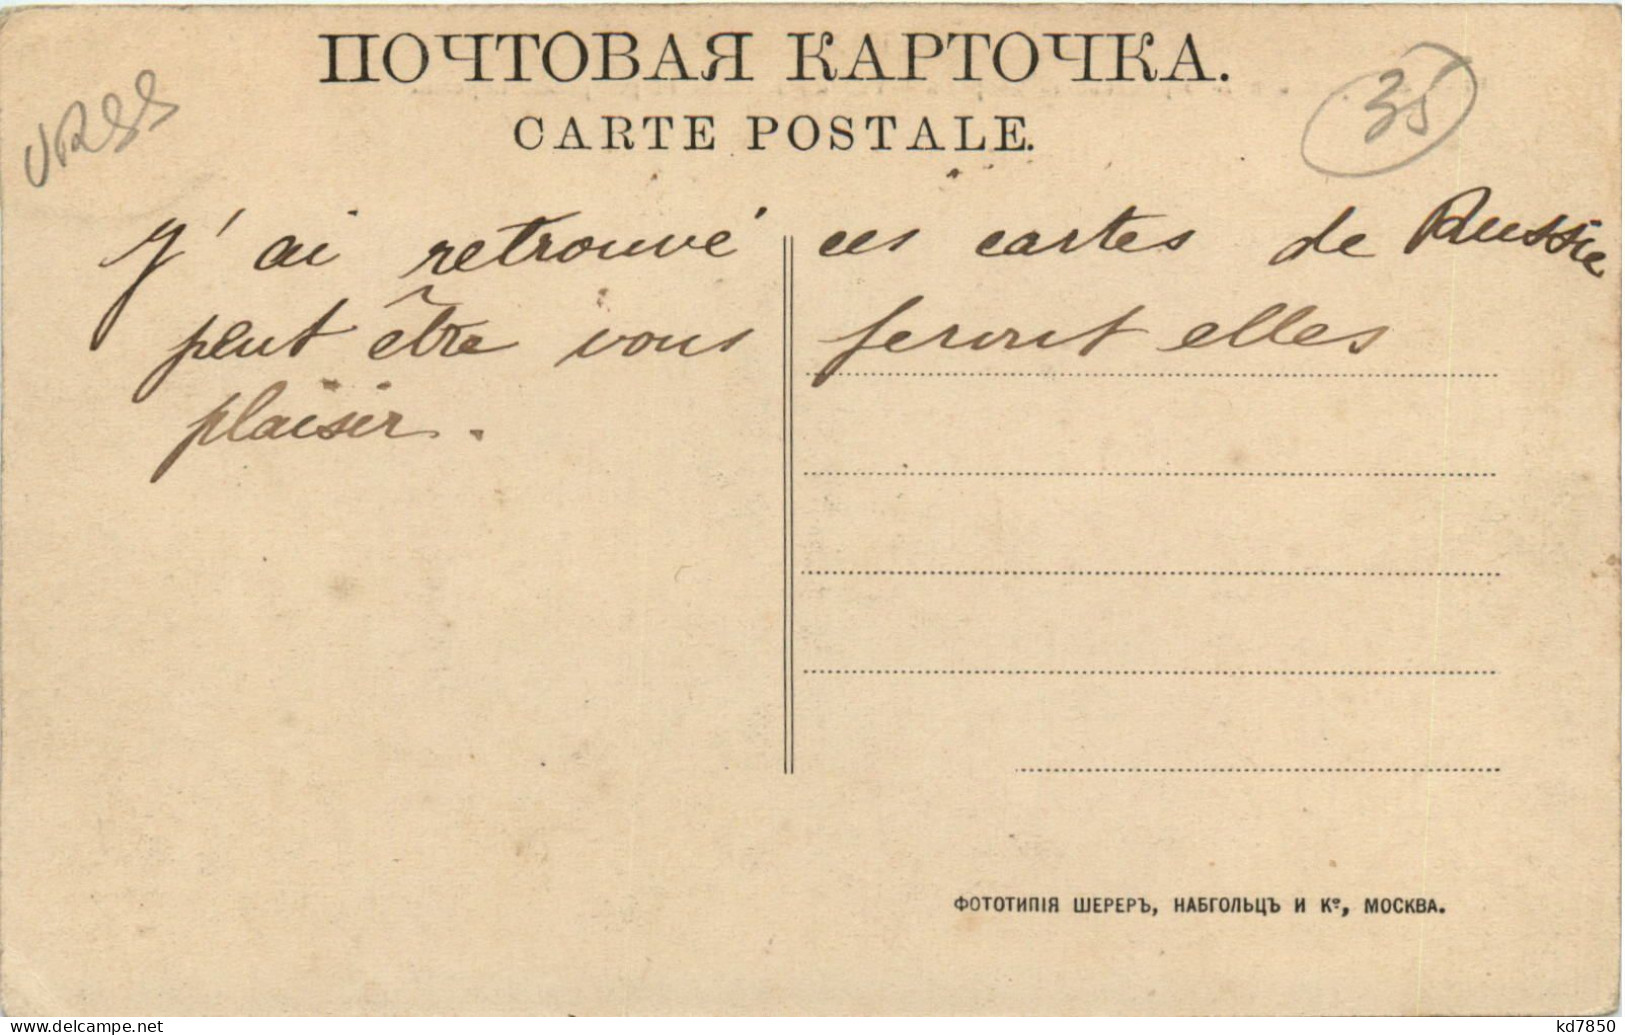 ПОЧТОВАЯ КАРТОЧКА.
CARTE POSTALE.
URSS
35
J'ai retrouvé ces cartes de Russie
peut être vous feront elles
plaisir.
ФОТОТИПІЯ ШЕРЕРЪ, НАБГОЛЬЦЪ И Кº, МОСКВА.
kd7850